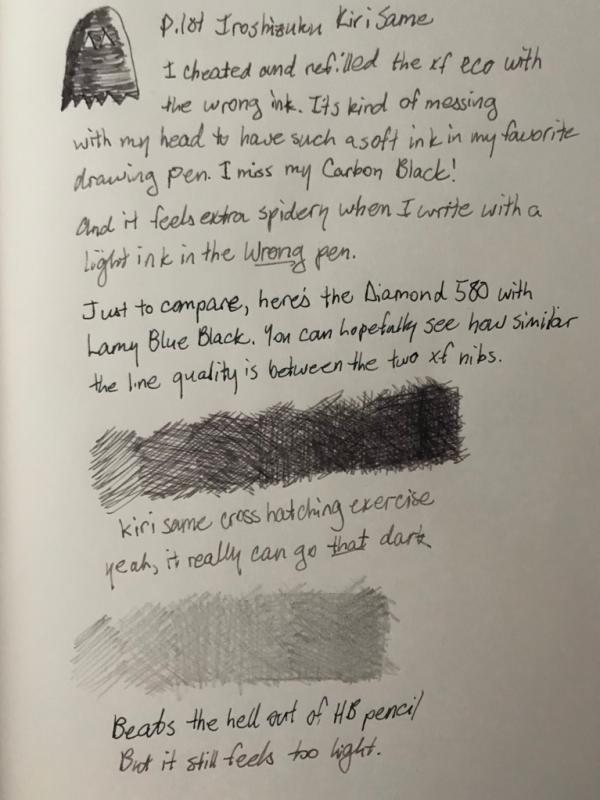 Pilot Iroshizuku Kiri Same
I cheated and refilled the xf eco with
the wrong ink. Its kind of messing
with my head to have such a soft ink in my favorite
drawing pen. I miss my Carbon Black!
And it feels extra spidery when I write with a
Light ink in the Wrong pen.
Just to compare, here's the Diamond 580 with
Lamy Blue Black. You can hopefully see how similar
the line quality is between the two xf nibs.
kiri same cross hatching exercise
yeah, it really can go that dark
Beats the hell out of HB pencil
But it still feels too light.